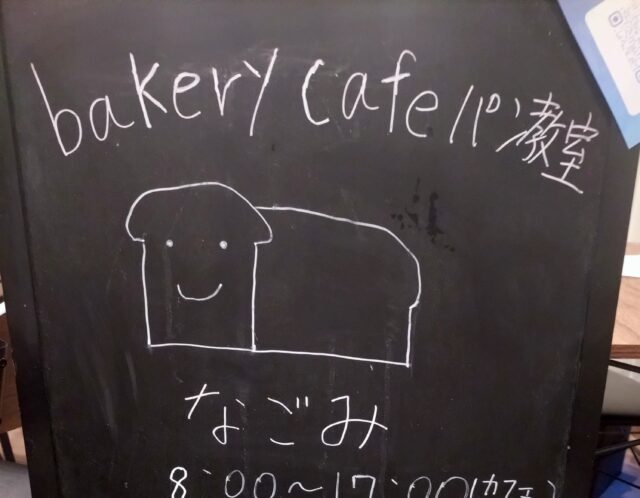 bakery cafe パン教室
なごみ
8:00～17:00(カフェ)